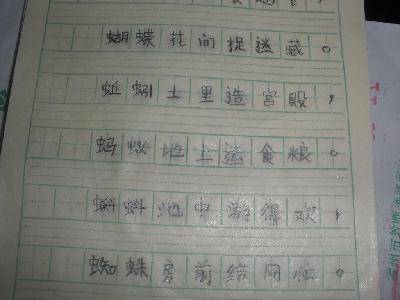 蝴蝶花间捉迷藏。
蚯蚓土里造宫殿，
蚂蚁地上运食粮。
蝌蚪池中游得欢，
蜘蛛房前结网忙